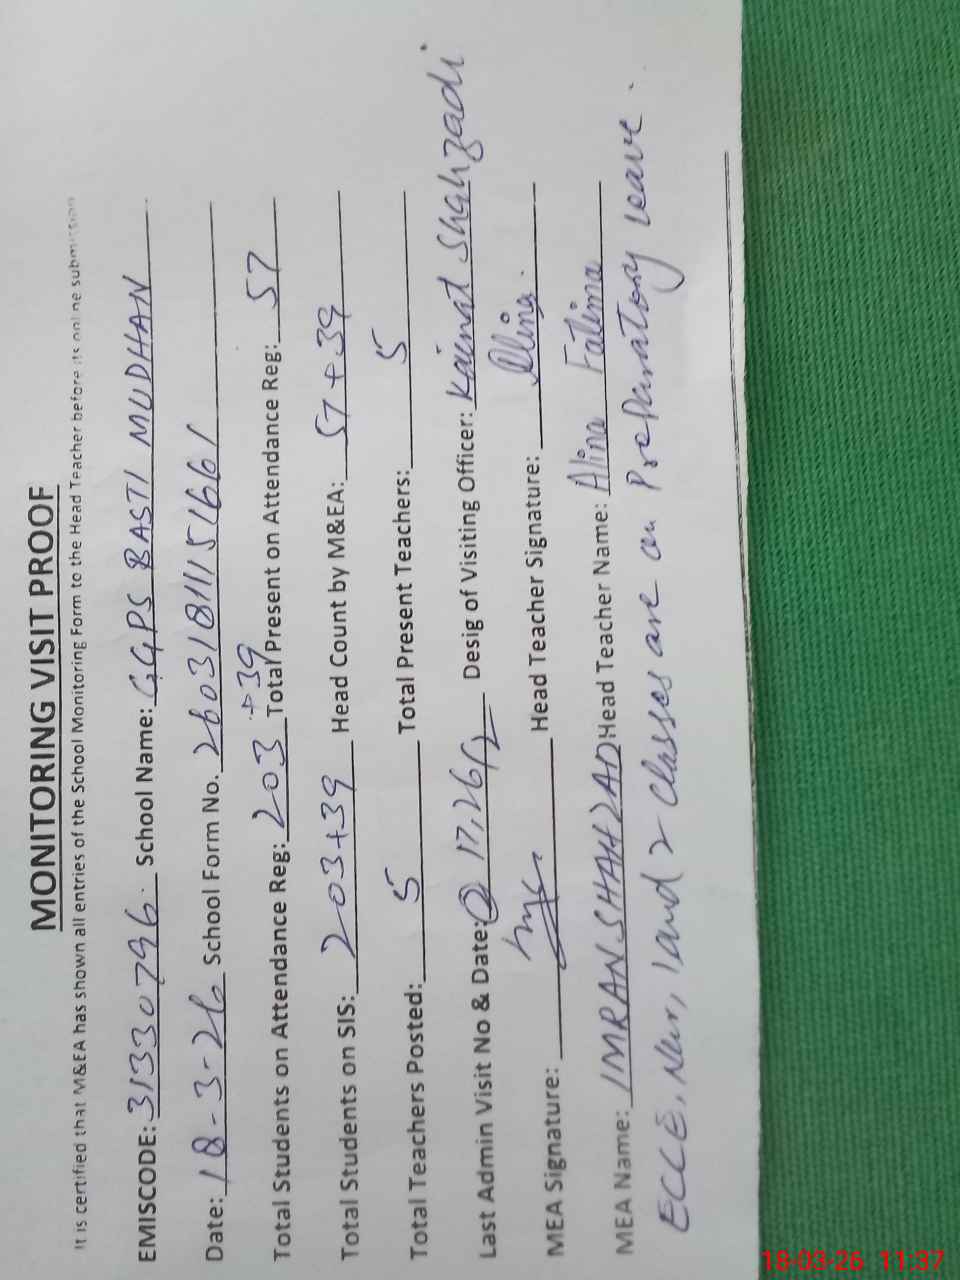 MONITORING VISIT PROOF
It is certified that M&EA has shown all entries of the School Monitoring Form to the Head Teacher before its online submission
EMISCODE: 31330796. School Name: GGPS BASTI MUDHAN
Date: 18-3-26 School Form No. 26031811151661
+39
Total Students on Attendance Reg: 203 Total Present on Attendance Reg: 57
Total Students on SIS: 203+39 Head Count by M&EA: 57+39
Total Teachers Posted: 5 Total Present Teachers: 5
Last Admin Visit No & Date: 2 17,26/2 Desig of Visiting Officer: Kainat Shahzadi
MEA Signature: Head Teacher Signature: Alina.
MEA Name: IMRAN SHAHZAD Head Teacher Name: Alina Fatima
ECCE, Nur, 1 and 2 classes are on Preparatory leave.
18-03-26 11:37